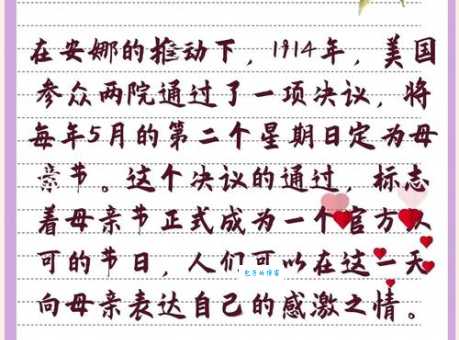 在安娜的推动下，1914年，美国
参众两院通过了一项决议，将
每年5月的第二个星期日定为母
亲节。这个决议的通过，标志
着母亲节正式成为一个官方认
可的节日，人们可以在这一天
向母亲表达自己的感激之情。